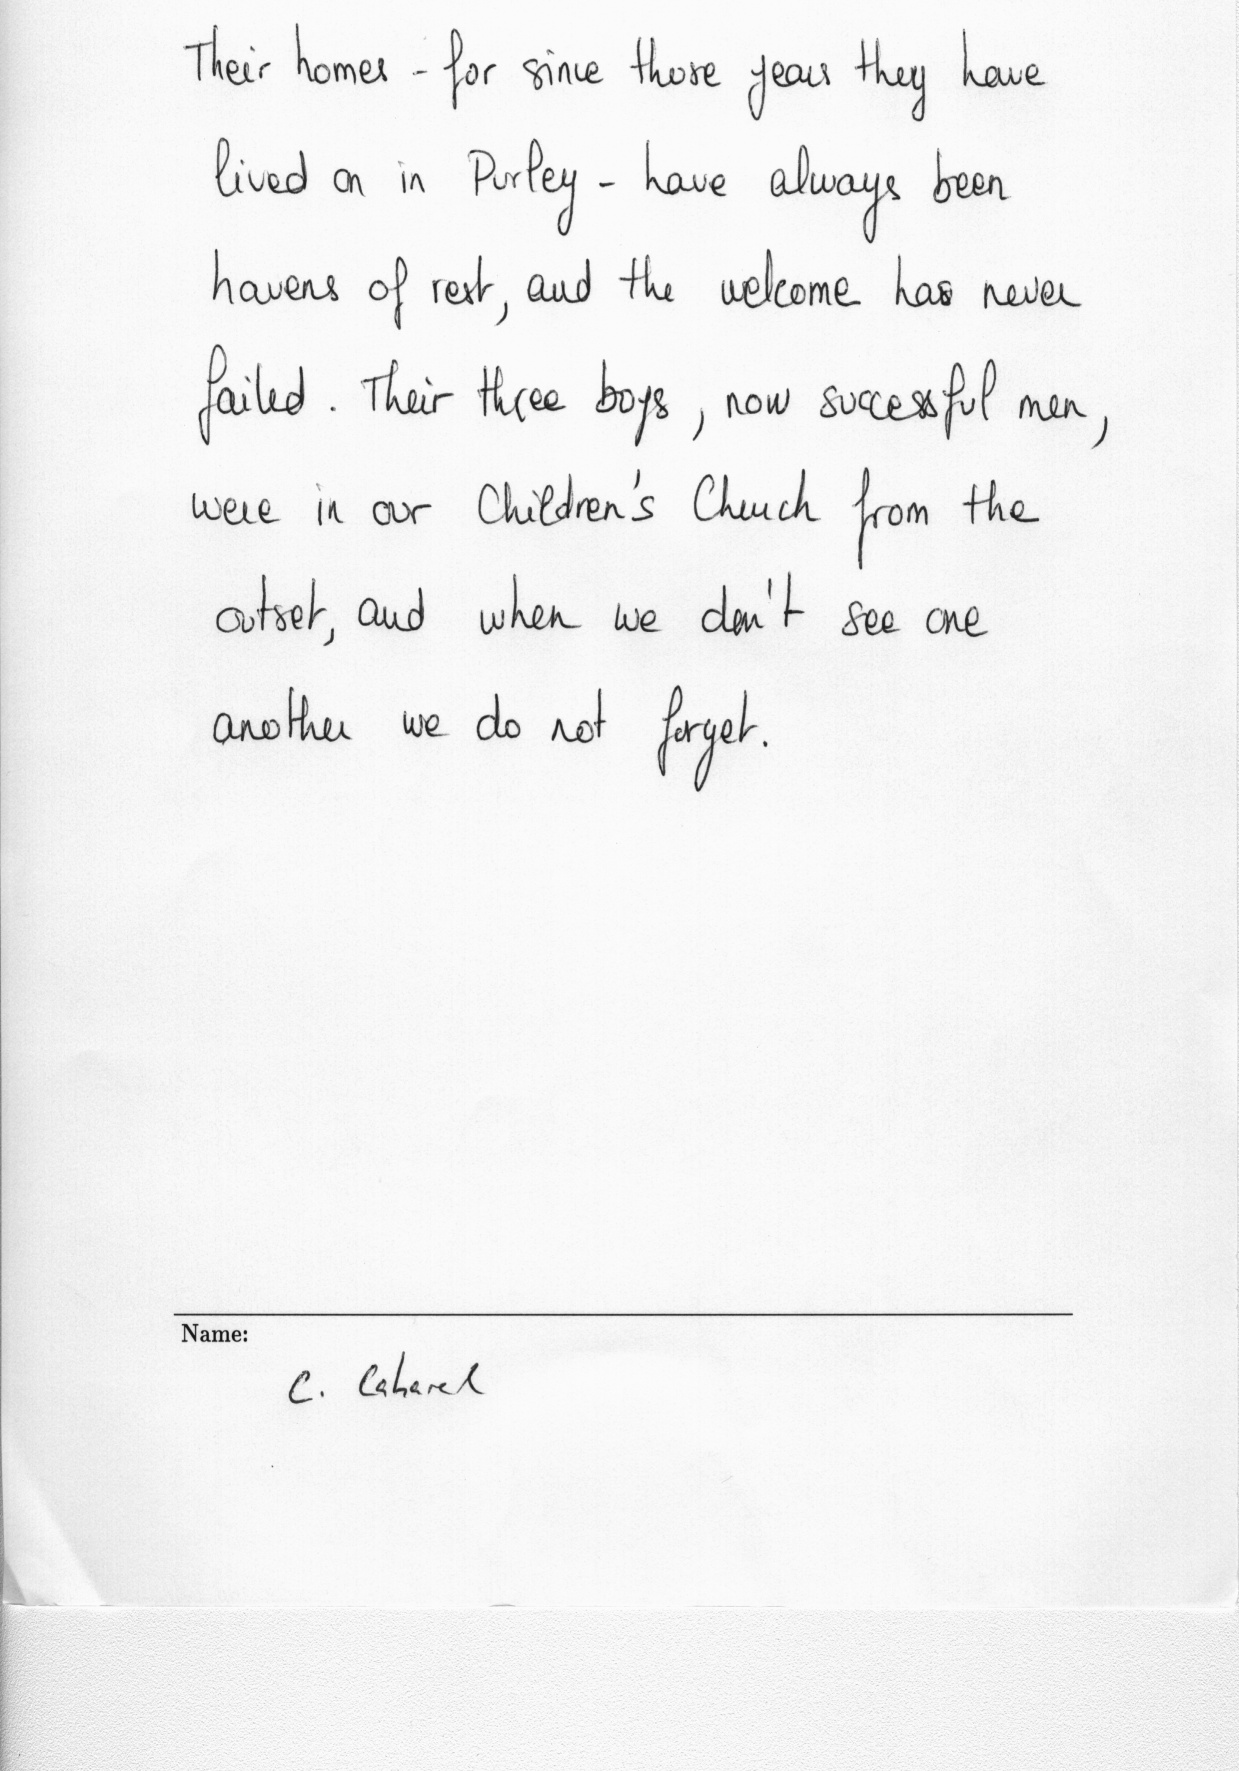 Their homes - for since those years they have
lived on in Purley - have always been
havens of rest, and the welcome has never
failed. Their three boys, now successful men,
were in our Children's Church from the
outset, and when we don't see one
another we do not forget.
Name:
C. Cabaret